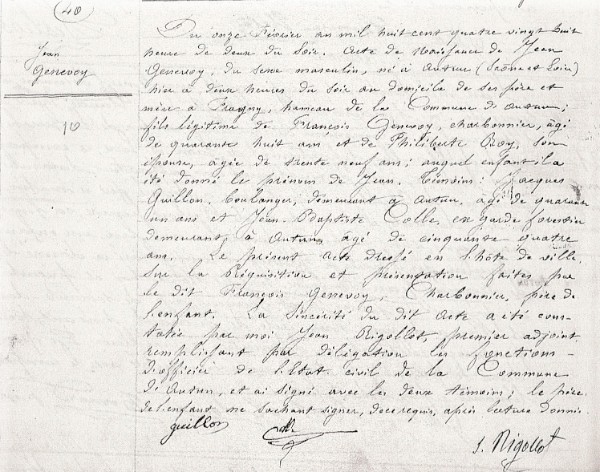 40
Jean
Genevoy
10
Du onze Février an mil huit cent quatre vingt huit
heure de deux du soir. Acte de Naissance de Jean
Genevoy, du sexe masculin, né à Autun (Saône et Loire)
hier à deux heures du soir au domicile de ses père et
mère à Fragny, hameau de la Commune d'Autun;
fils légitime de François Genevoy, charbonnier, âgé
de quarante huit ans et de Philiberte Roy, son
épouse, âgée de trente neuf ans; auquel enfant il a
été donné le prénom de Jean. Témoins: Jacques
Guillon, boulanger, demeurant à Autun, âgé de quarante
un ans et Jean-Baptiste Colle, garde forestier
demeurant, à Autun âgé de cinquante quatre
ans. Le présent acte dressé en l'hôte de ville
sur la Réquisition et présentation faites par
le dit François Genevoy, Charbonnier, père de
l'enfant. La Sincérité du dit Acte a été cons-
tatée par moi Jean Rigollot, premier adjoint,
remplissant par délégation les fonctions
d'officier de l'Etat civil de la Commune
d'Autun, et ai signé avec les deux témoins; le père
de l'enfant ne sachant signer, de ce requis, après lecture donnée.
Guillon
J. Rigollot